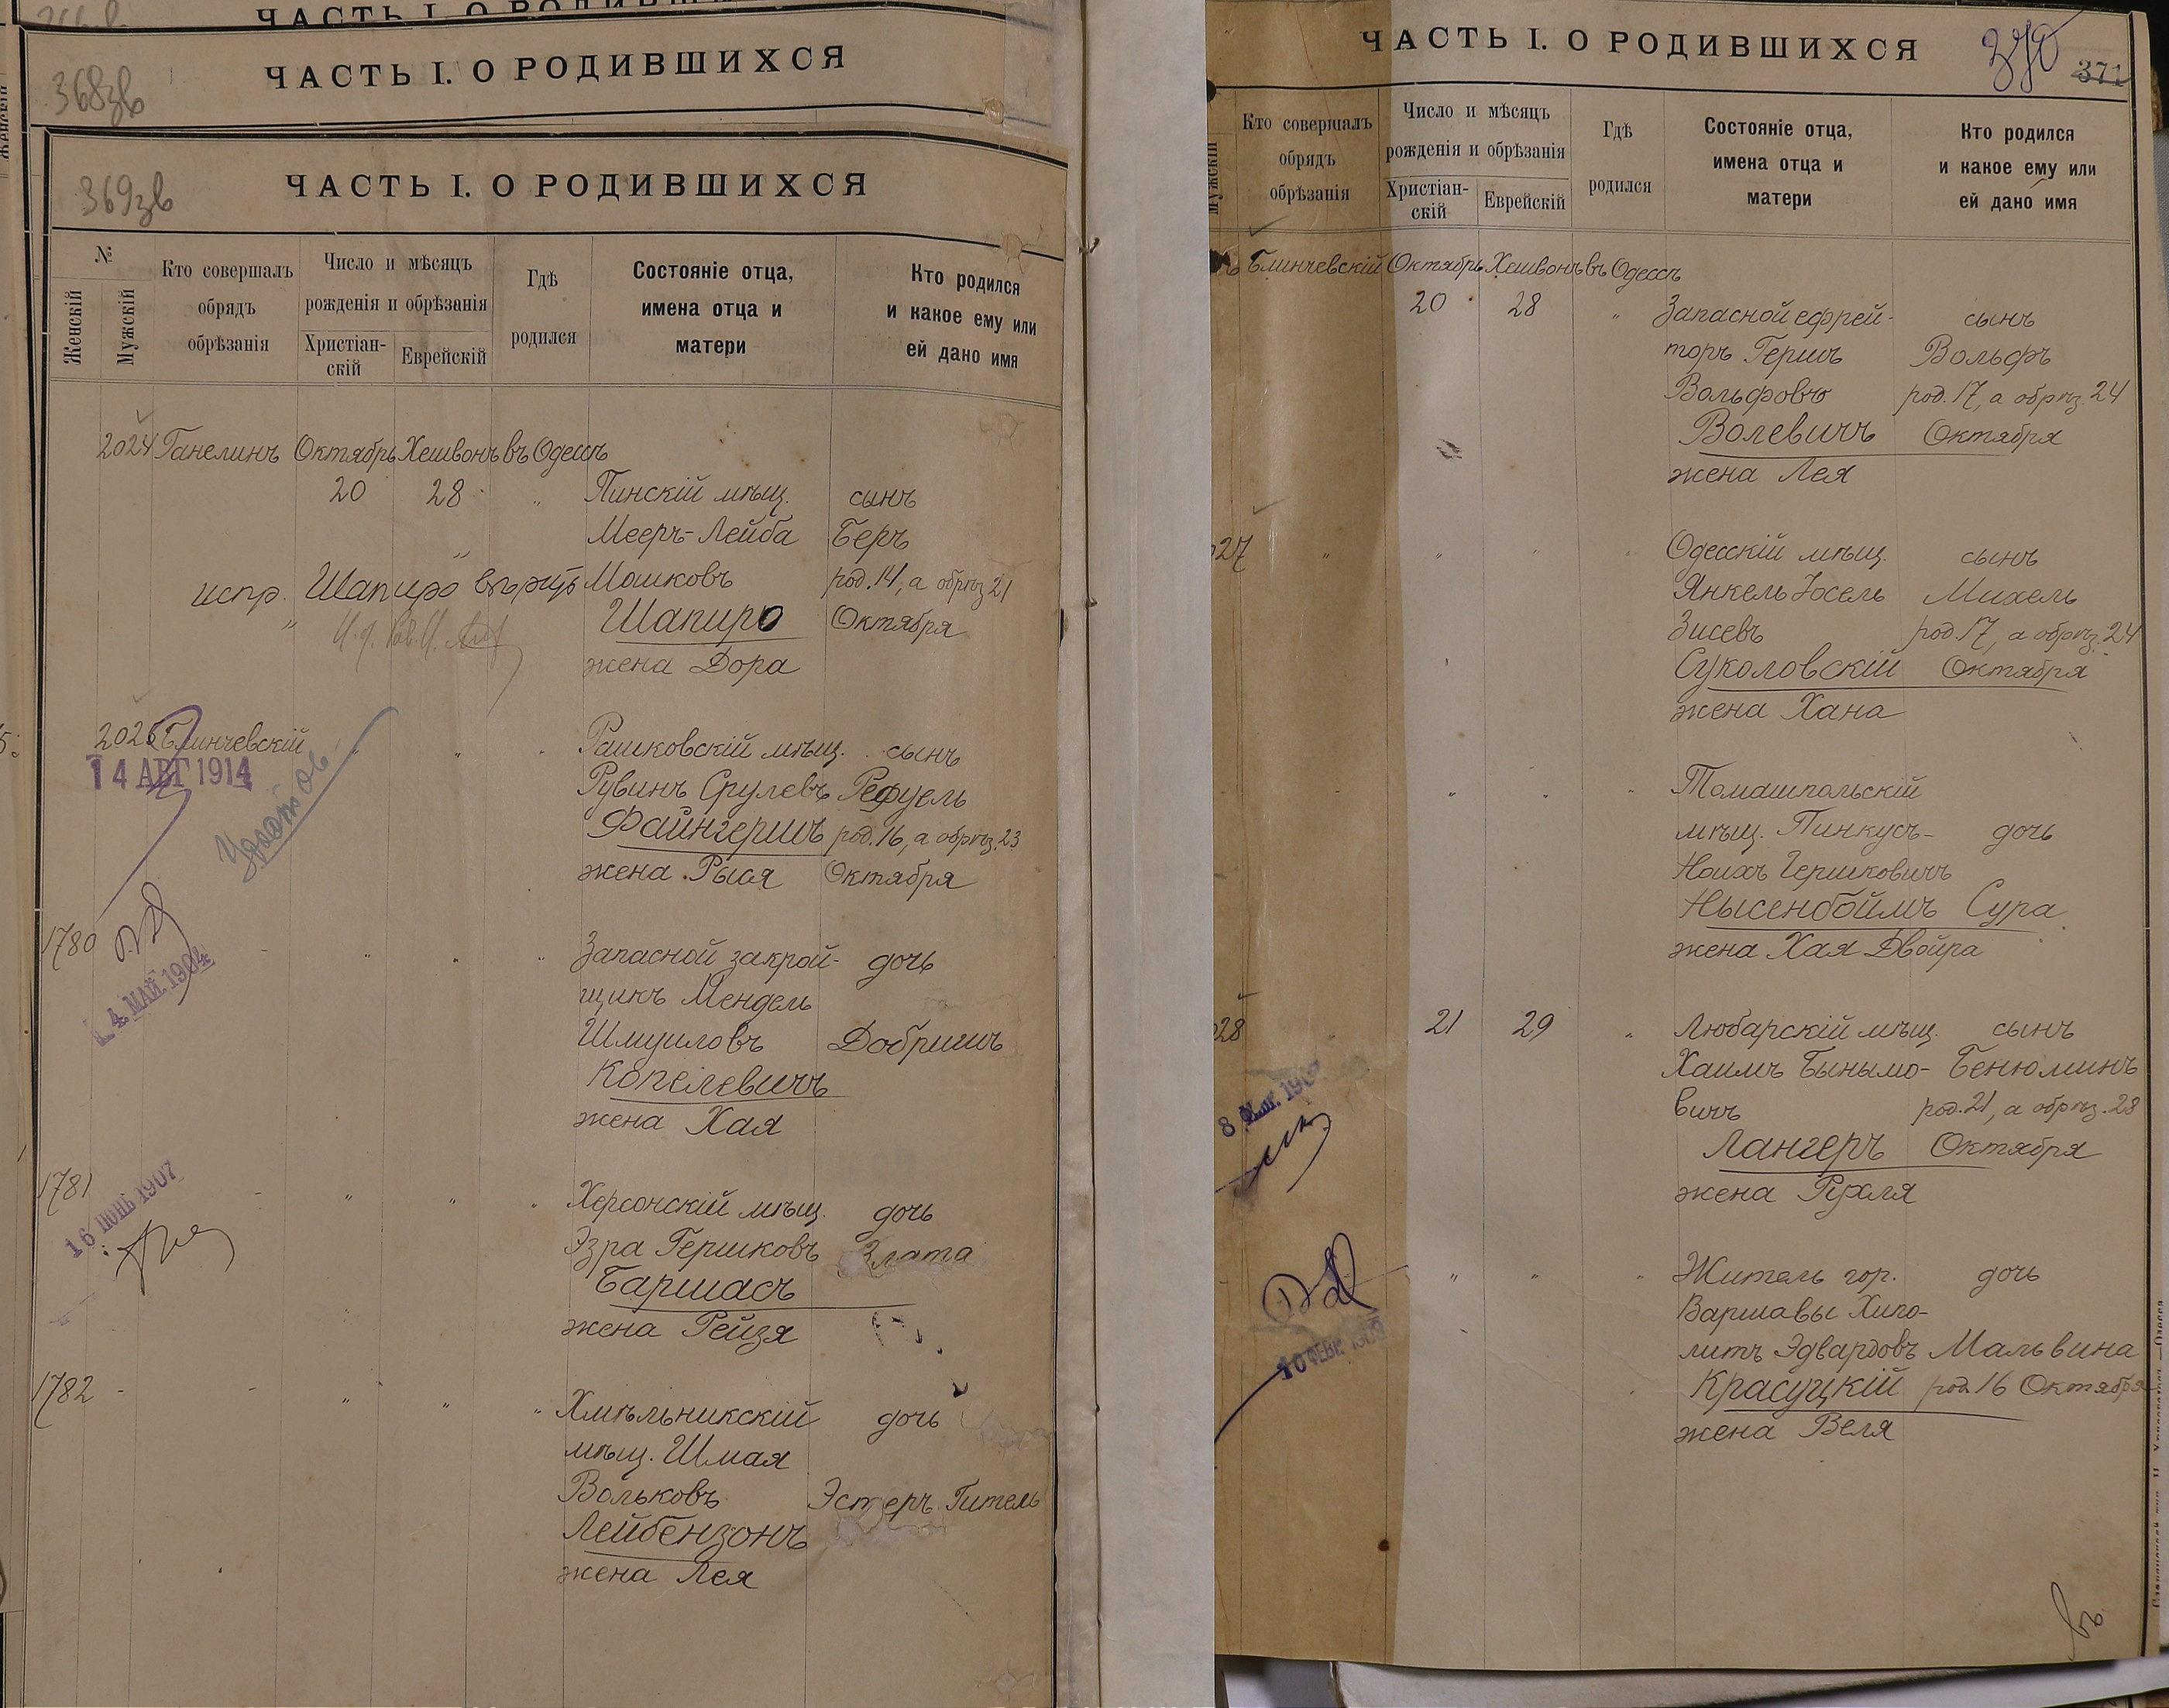 ЧАСТЬ I. О РОДИВШИХСЯ
368зв
ЧАСТЬ I. О РОДИВШИХСЯ
369зв
ЧАСТЬ I. О РОДИВШИХСЯ
№
Женскій
Мужскій
Кто совершалъ
обрядъ
обрѣзанія
Число и мѣсяцъ
рожденія и обрѣзанія
Христіан-
скій
Еврейскій
Гдѣ
родился
Состояніе отца,
имена отца и
матери
Кто родился
и какое ему или
ей дано имя
2024 Ганелинъ Октябрь Хешвонъ въ Одессѣ
20 28 " Пинскій мѣщ. сынъ
Мееръ-Лейба Беръ
испр. Шапиро вѣрить Мошковъ род. 14, а обрѣз 21
Шапиро Октября
жена Дора
2025 Блинчевскій " " Рашковскій мѣщ. сынъ
14 АВГ 1914
Рувинъ Срулевъ Рефуель
Файнгершъ род. 16, а обрѣз. 23
жена Рыся Октября
1780 - " " " Запасной закрой- дочь
щикъ Мендель
4 МАЙ 1904
Шмуиловъ Добришъ
Копелевичъ
жена Хая
1781 - " " " Херсонскій мѣщ. дочь
16 ІЮНЬ 1907
Эзра Гершковъ Злата
Баршасъ
жена Рейзя
1782 - - " " " Хмѣльникскій дочь
мѣщ. Шмая
Вольковъ Эстеръ Гитель
Лейбензонъ
жена Лея
ЧАСТЬ I. О РОДИВШИХСЯ
370
371
Мужскій
Кто совершалъ
обрядъ
обрѣзанія
Число и мѣсяцъ
рожденія и обрѣзанія
Христіан-
скій
Еврейскій
Гдѣ
родился
Состояніе отца,
имена отца и
матери
Кто родился
и какое ему или
ей дано имя
Блинчевскій Октябрь Хешвонъ въ Одессѣ
20 28 " Запасной ефрей- сынъ
торъ Гершъ Вольфъ
Вольфовъ род. 17, а обрѣз. 24
Волевичъ Октября
жена Лея
27 " " " " Одесскій мѣщ. сынъ
Янкель Іосель Михель
Зисевъ род. 17, а обрѣз. 24
Суколовскій Октября
жена Хана
" " " Томашпольскій
мѣщ. Пинкусъ- дочь
Ноихъ Гершковичъ
Нысенбоймъ Сура
жена Хая Двойра
28 " 21 29 " Любарскій мѣщ. сынъ
Хаимъ Бынымо- Бенюминъ
вичъ род. 21, а обрѣз. 28
Лангеръ Октября
жена Рухля
" " " Житель гор. дочь
Варшавы Хипо-
литъ Эдвардовъ Мальвина
Красуцкій род. 16 Октября
жена Веля